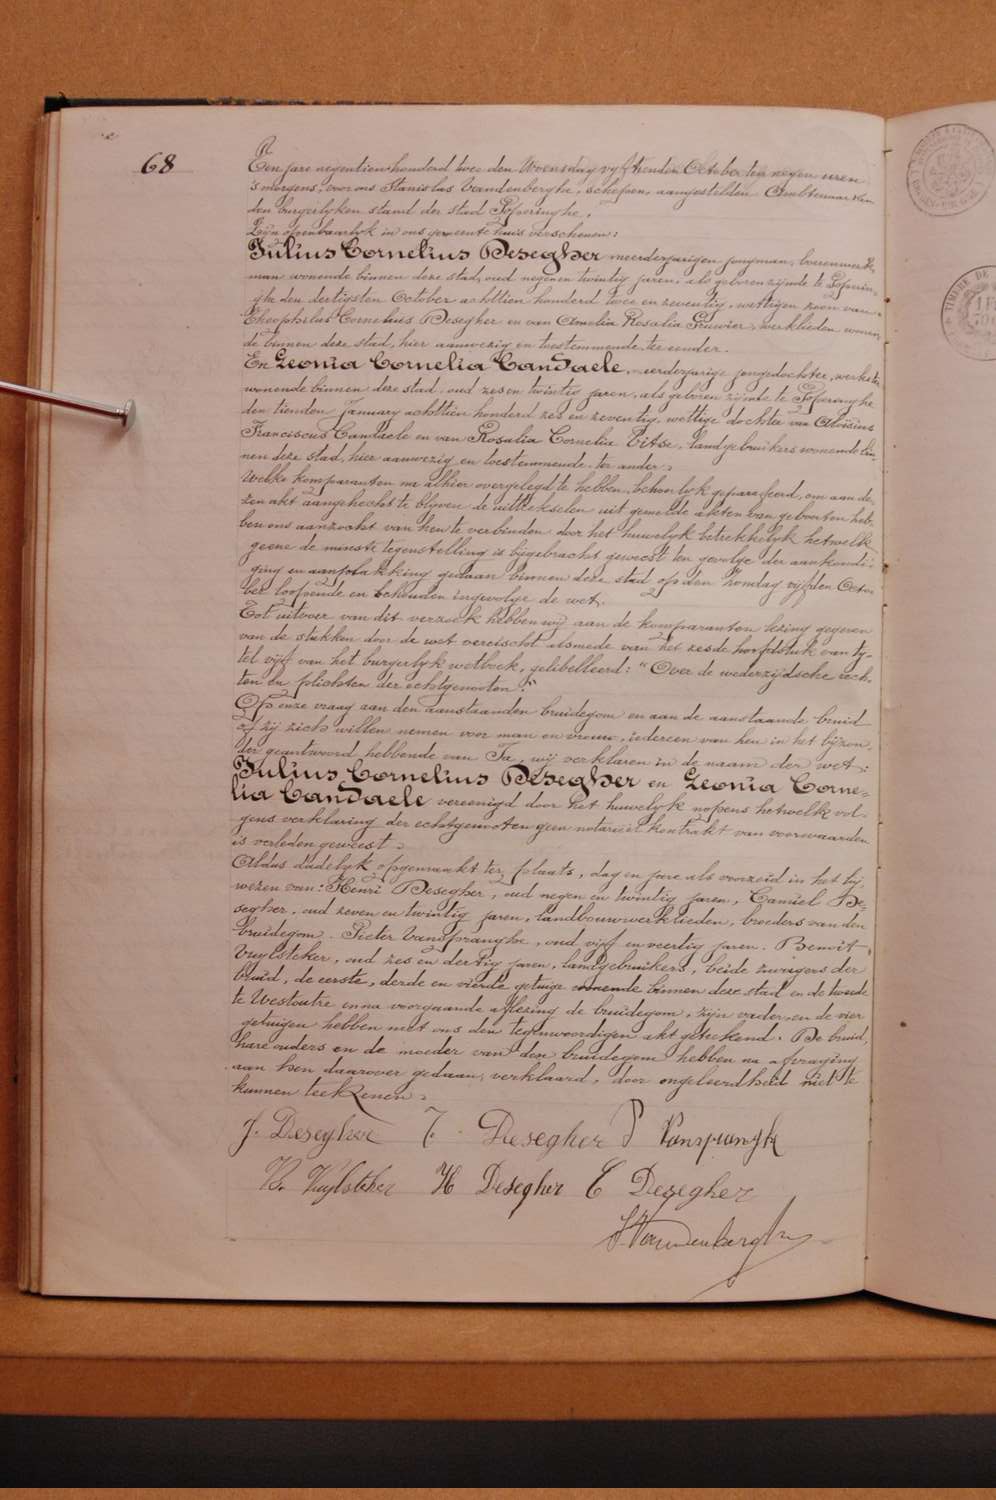 68
Een jare negentien honderd twee den Woensdag vyftienden October ten negen uren
's morgens, voor ons Stanislas Vandenberghe, schepen, aangestelden Ambtenaar van
den burgerlyken stand der stad Poperinghe,
Zijn openbaarlyk in ons gemeentehuis verschenen:
Julius Cornelius Desegher meerderjarigen jongman, boerenwerk-
man wonende binnen deze stad, oud negen en twintig jaren, als geboren zijnde te Poperin-
ghe den dertigsten October achttien honderd twee en zeventig, wettigen zoon van
Theophilus Cornelius Desegher en van Amelia Rosalia Gruwier, werklieden wonen-
de binnen deze stad, hier aanwezig en toestemmende, ter eender.
En Leonia Cornelia Candaele, meerderjarige jongedochter, werkster
wonende binnen deze stad, oud zes en twintig jaren, als geboren zijnde te Poperinghe
den tienden January achttien honderd zes en zeventig, wettige dochter van Aloïsius
Franciscus Candaele en van Rosalia Cornelia Titse, landgebruikers wonende bin-
nen deze stad, hier aanwezig en toestemmende, ter ander.
Welke komparanten na alhier overgelegd te hebben, behoorlyk geparafeerd, om aan de-
zen akt aangehecht te blyven de uittrekselen uit gemelde akten van geboorten heb-
ben ons aanzocht van hen te verbinden door het huwelyk betrekkelyk hetwelk
geene de minste tegenstelling is bijgebracht geweest ten gevolge der aankondi-
ging en aanplakking gedaan binnen deze stad op den Zondag vijfden Octo-
ber loopende en behouden ingevolge de wet.
Tot uitvoer van dit verzoek hebben wij aan de komparanten lezing gegeven
van de stukken door de wet vereischt alsmede van het zesde hoofdstuk van ty-
tel vijf van het burgerlyk wetboek, gelibelleerd: "Over de wederzijdsche rech-
ten en plichten der echtgenooten."
Op onze vraag aan den aanstaanden bruidegom en aan de aanstaande bruid
of zij zich willen nemen voor man en vrouw, iedereen van hen in het bijzon-
der geantwoord hebbende van Ja, wij verklaren in de naam der wet:
Julius Cornelius Desegher en Leonia Corne-
lia Candaele vereenigd door het huwelyk nopens hetwelk vol-
gens verklaring der echtgenooten geen notarieel kontrakt van voorwaarden
is verleden geweest.
Aldus dadelyk opgemaakt ter plaats, dag en jare als voorzeid in het bij
wezen van: Henri Desegher, oud negen en twintig jaren, Camiel De-
segher, oud zeven en twintig jaren, landbouwwerklieden, broeders van den
bruidegom. Pieter Vanspranghe, oud vijf en veertig jaren. Benoit
Vuylsteker, oud zes en dertig jaren, landgebruikers, beide zwagers der
bruid, de eerste, derde en vierde getuige wonende binnen deze stad en de tweede
te Westoutre en na voorgaande aflezing de bruidegom, zijn vader en de vier
getuigen hebben met ons den tegenwoordigen akt geteekend. De bruid,
hare ouders en de moeder van den bruidegom hebben na afvraging
aan hen daarover gedaan, verklaard, door ongeleerdheid niet te
kunnen teekenen.
J. Desegher T. Desegher P Vanspranghe
B. Vuylsteker H Desegher C Desegher
S Vandenberghe